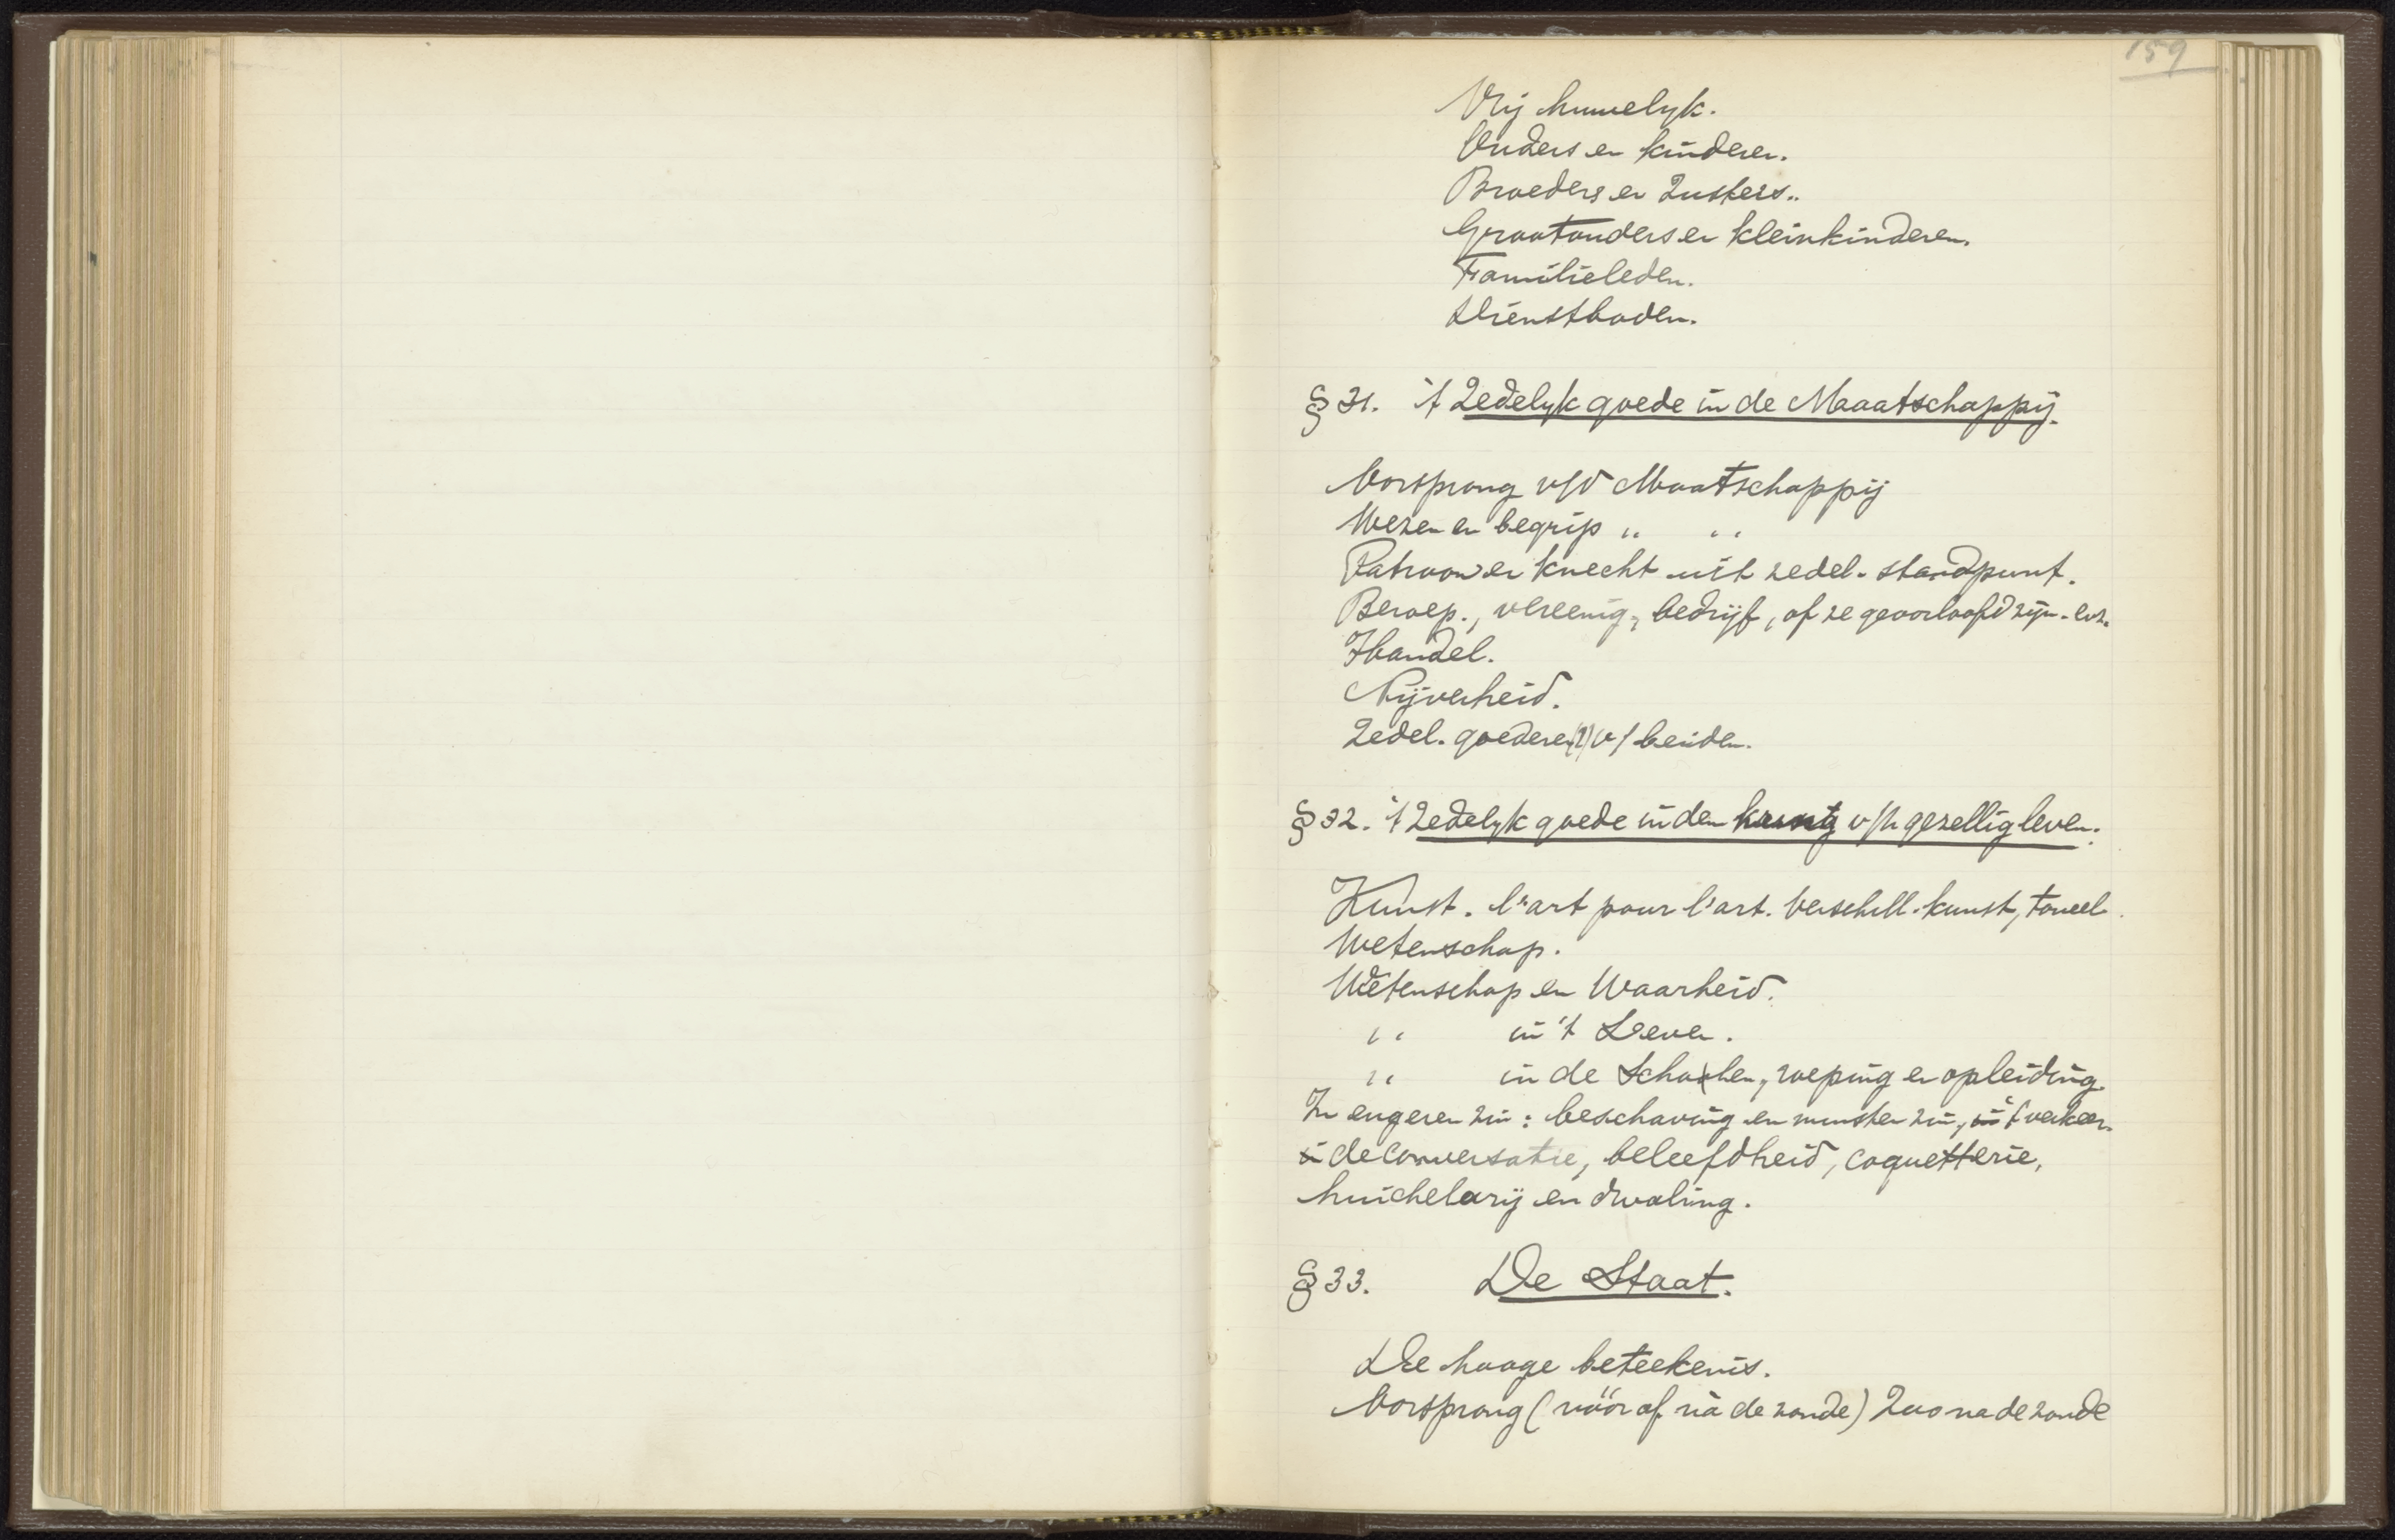 159
Vrij huwelyk.
Ouders en kinderen.
Broeders en Zusters..
Grootouders en kleinkinderen.
Familieleden.
Dienstboden.
§ 31. 't Zedelyk goede in de Maatschappij.
Oorsprong v/d Maatschappij
Wezen en begrip " "
Patroon en knecht uit zedel. standpunt.
Beroep., vereenig., bedrijf, of ze geoorloofd zijn. enz.
Handel.
Nijverheid.
Zedel. goederen (?) v/ beiden.
§ 32. 't Zedelyk goede in den kring v/h gezellig leven.
Kunst. l'art pour l'art. Verschill. kunst, toneel.
Wetenschap.
Wetenschap en Waarheid.
" in 't Leven.
" in de Scholen, roeping en opleiding.
In engeren zin: beschaving en zin, in 't verkeer.
in de Conversatie, beleefdheid, coquetterie,
huichelarij en dwaling.
§ 33. De Staat.
De hooge beteekenis.
Oorsprong (vóór of ná de zonde) Zoo na de zonde